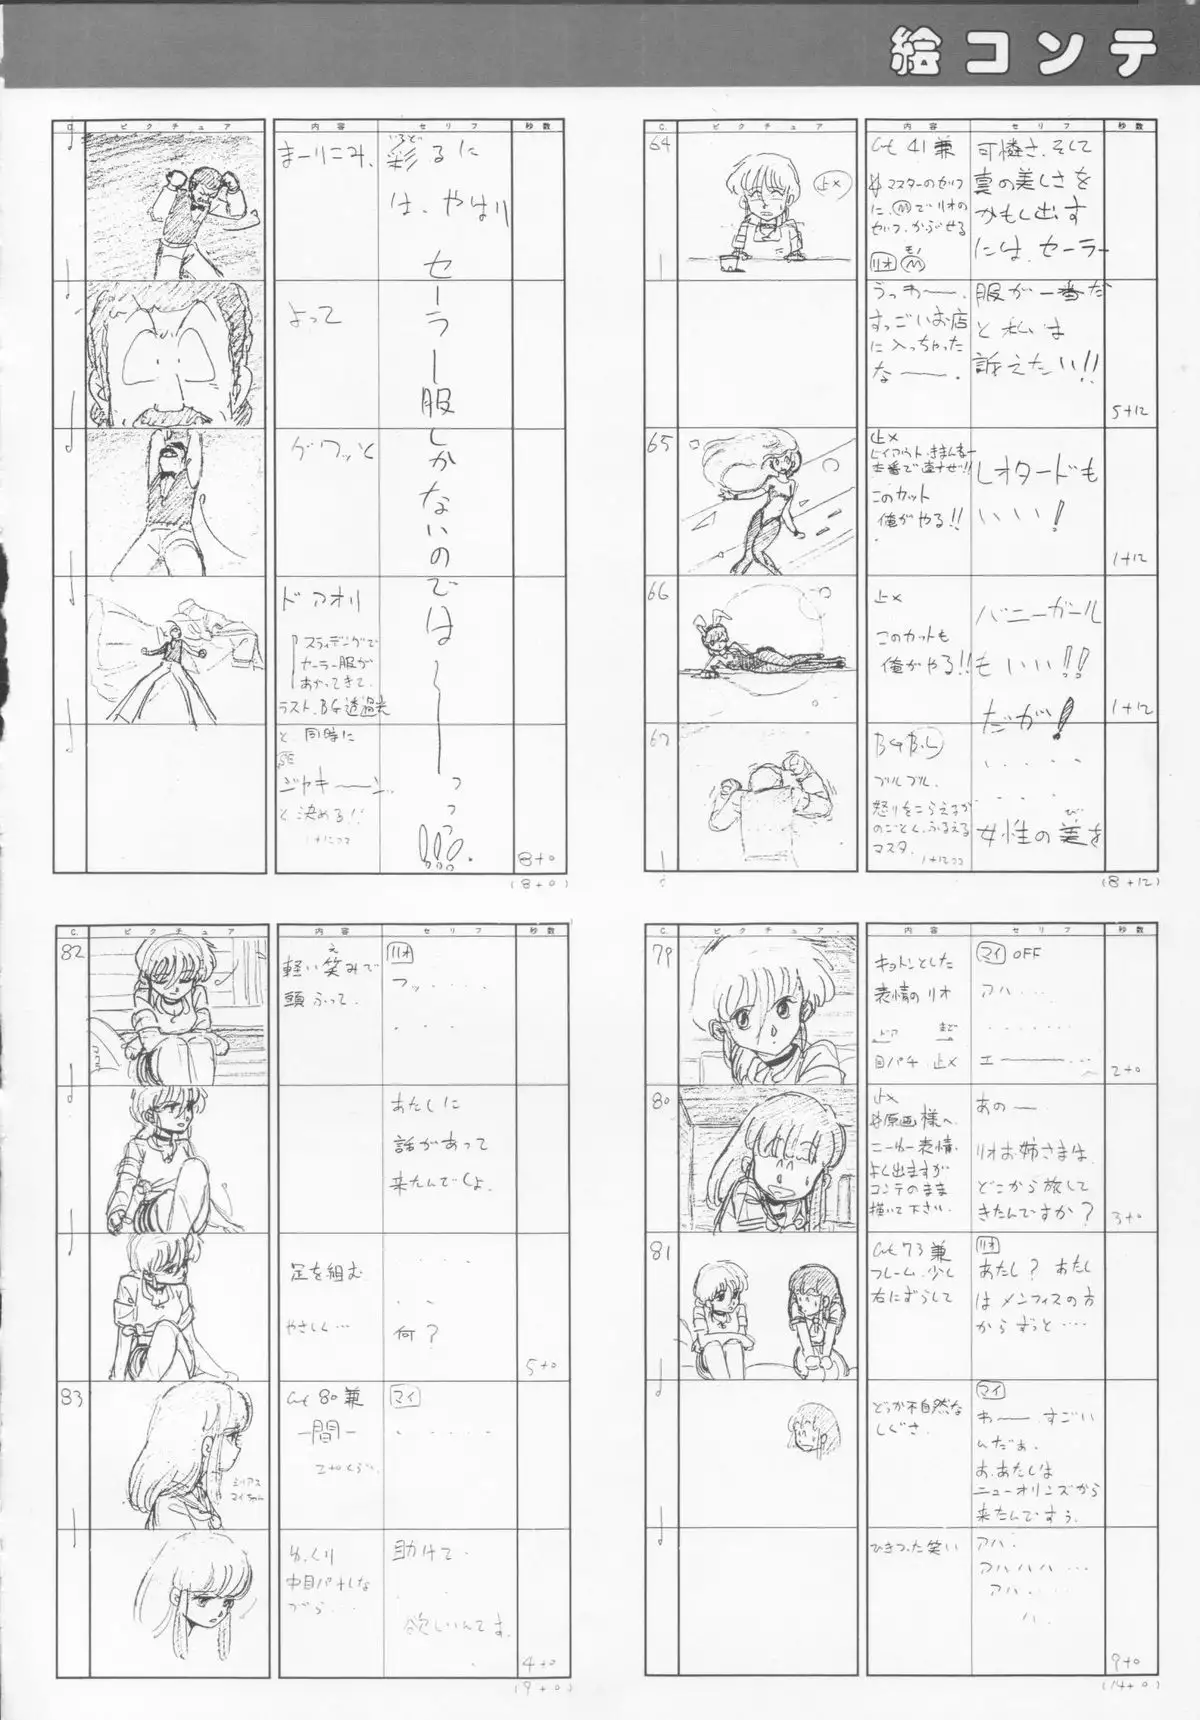 絵コンテ
C. ピクチュア 内容 セリフ 秒数
64
Cut 41 兼
マスターのセリフ
に、Ⓜでリオの
セリフ、かぶせる
リオ Ⓜ
うっわー、
すっごいお店
に入っちゃった
なー。
止メ
可憐さ、そして
真の美しさを
かもし出す
には、セーラー
服が一番だ
と私は
訴えたい!!
5+12
65
止メ
このカット
俺がやる!!
レオタードも
いい!
1+12
66
止メ
このカットも
俺がやる!!
バニーガール
もいい!!
だが!
1+12
67
BG BL
ブルブル
怒りをこらえるが
のごとく、ふるえる
マスタ。
・・・・・
・・・
女性の美を
び
(8+12)
C. ピクチュア 内容 セリフ 秒数
まーりこみ、
いろど
彩るに
は、やはり
セーラー服しかないのでは――っっっ!!!
よって
グワッと
ドアオリ
スライディングで
セーラー服が
あがってきて、
ラスト、BG透過光
と同時に
SE
ジャキーン
と決める!!
8+0
(8+0)
C. ピクチュア 内容 セリフ 秒数
79
キョトンとした
表情のリオ
ドア まど
目パチ 止メ
マイ OFF
アハ・・・
・・・・・・
エー――・・
2+0
80
止メ
原画様へ
よく出ますが
コンテのまま
描いて下さい。
あのー
リオお姉さまは、
どこから旅して
きたんですか?
3+0
81
Cut 73 兼
フレーム、少し
右にずらして
リオ
あたし? あたし
はメンフィスの方
からずっと・・・・
どっか不自然な
しぐさ。
マイ
わー、すごい
んだぁ。
お、あたしは
ニューオリンズから
来たんですぅ。
ひきつった笑い
アハ・
アハハハ・・・
アハ・・・・
ハ・
9+0
(14+0)
C. ピクチュア 内容 セリフ 秒数
82
え
軽い笑みで
頭ふって、
リオ
フッ・・・・・
・・・
あたしに
話があって
来たんでしょ。
足を組む
やさしく…
・・・・
・・
何?
5+0
83
Cut 80 兼
―間―
2+0くらい
マイ
・・・・・・
ゆっくり
中目パチしな
がら・・・
助けて・
・・
欲しいんです。
4+0
(9+0)